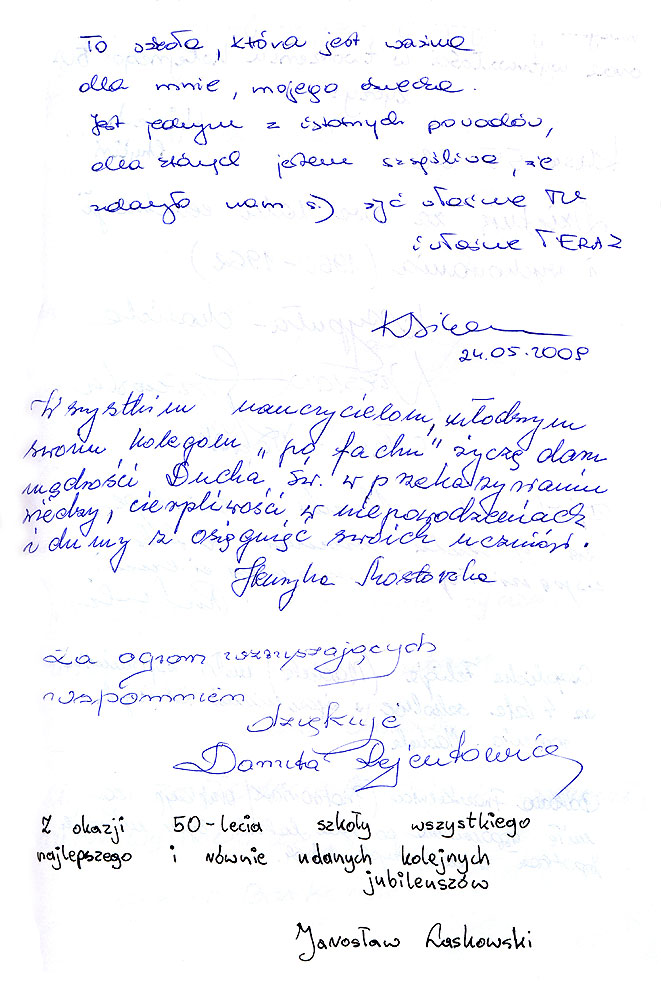 To szkoła, która jest ważna
dla mnie, mojego dziecka.
Jest jednym z istotnych powodów,
dla których jestem szczęśliwa, że
zdarzyło nam się żyć właśnie TU
i właśnie TERAZ
24.05.2009
Wszystkim nauczycielom, młodszym
swoim kolegom "po fachu" życzę darów
mądrości Ducha Św. w przekazywaniu
wiedzy, cierpliwości w niepowodzeniach
i dumy z osiągnięć swoich uczniów.
Henryka
Za ogrom wzruszających
wspomnień
dziękuję
Danuta Rejentowicz
Z okazji 50-lecia szkoły wszystkiego
najlepszego i równie udanych kolejnych
jubileuszów
Jarosław Laskowski